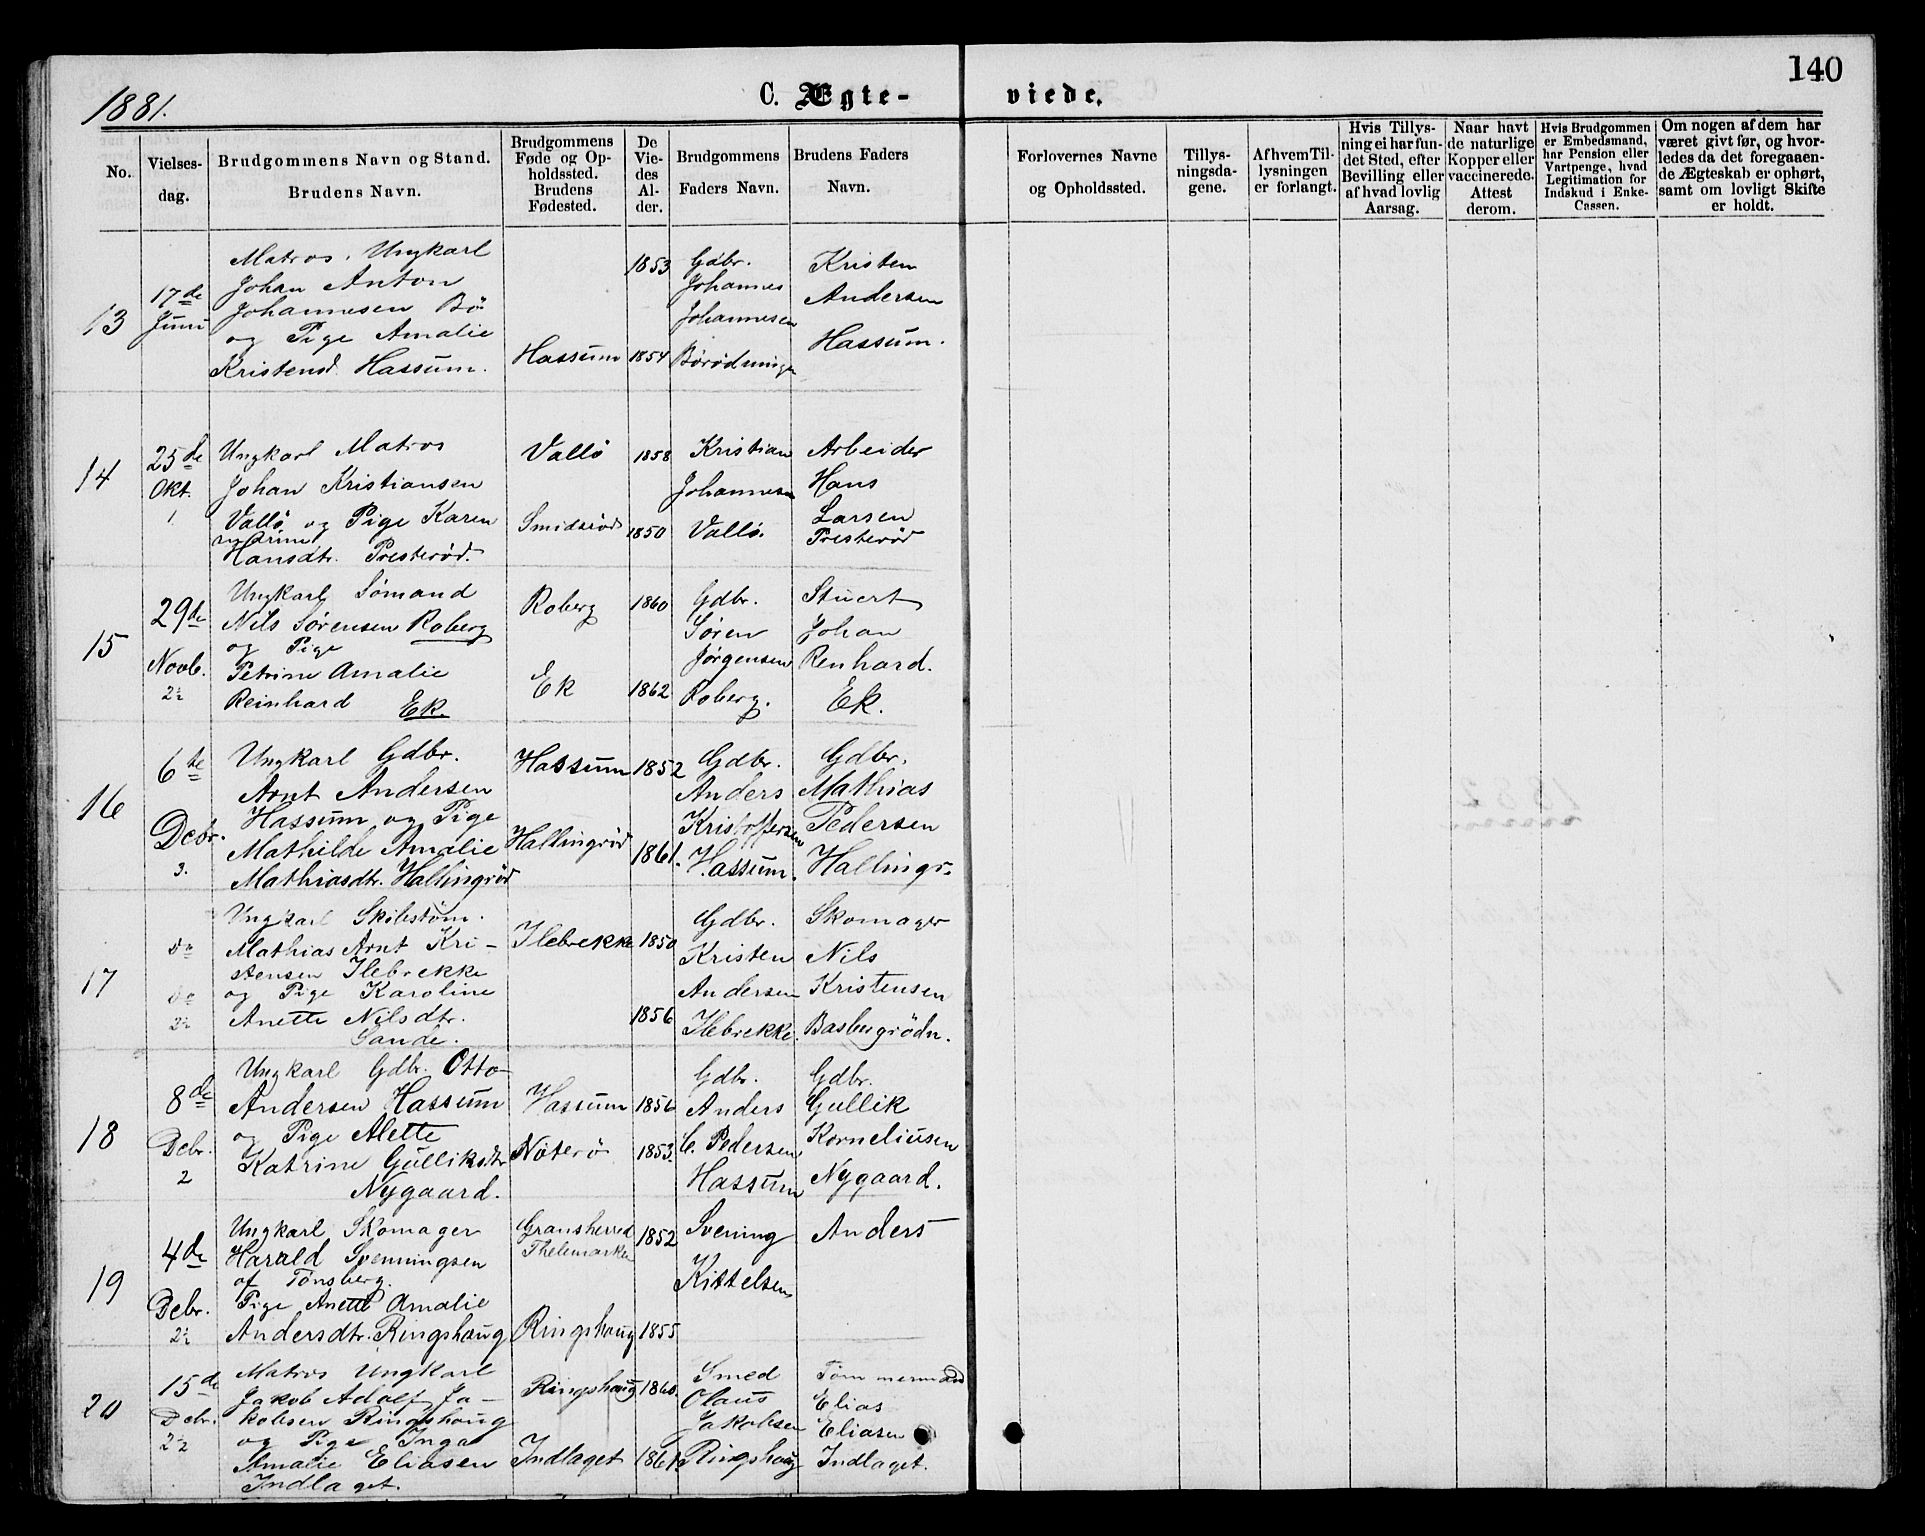 140
1881.
C. Ægte-
viede.
No.
Vielses-
dag.
Brudgommens Navn og Stand.
Brudens Navn.
Brudgommens
Føde og Op-
holdssted.
Brudens
Fødested.
De
Vie-
des
Al-
der.
Brudgommens
Faders Navn.
Brudens Faders
Navn.
Forlovernes Navne
og Opholdssted.
Tillys-
ningsda-
gene.
Af hvem Til-
lysningen
er forlangt.
Hvis Tillys-
ning ei har fun-
det Sted, efter
Bevilling eller
af hvad lovlig
Aarsag.
Naar havt
de naturlige
Kopper eller
vaccinerede.
Attest
derom.
Hvis Brudgommen
er Embedsmand,
har Pension eller
Vartpenge, hvad
Legitimation for
Indskud i Enke-
Cassen.
Om nogen af dem har
været givt før, og hvor-
ledes da det foregaaen-
de Ægteskab er ophørt,
samt om lovligt Skifte
er holdt.
13
17de
Juni
Matros. Ungkarl
Johan Anton
Johannesen Bö
og Pige Amalie
Kristensd. Hassum.
Hassum
1853
1854
Gdbr.
Johannes
Johannesen
Kristen
Andersen
Hassum.
14
25de
Okt.
1
Ungkarl Matros
Johan Kristiansen
Vallö og Pige Karen
Marine
Hansdtr. Presterød.
Vallö
Smidsröd
1858
1850
Kristian
Johannesen
Vallö.
Arbeider
Hans
Larsen
Presterød
15
29de
Novb.
2½
Ungkarl Sömand
Nils Sørensen Roberg
og Pige
Petrine Amalie
Reinhard Ek.
Roberg
Ek
1860
1862
Gdbr.
Søren
Jørgensen
Roberg.
Stuert
Johan
Renhard.
Ek.
16
6te
Decbr.
3.
Ungkarl Gdbr.
Arnt Andersen
Hassum og Pige
Mathilde Amalie
Mathiasdtr. Hallingröd
Hassum
Hallingröd
1852
1861.
Gdbr.
Anders
Kristoffersen
Hassum.
Gdbr.
Mathias
Pedersen
Hallingr.
17
do
do
2½
Ungkarl Skibstöm.
Mathias Arnt Kri-
stensen Ilebrekke
og Pige Karoline
Anette Nilsdtr.
Sande.
Ilebrekke
1850
1856
Gdbr.
Kristen
Andersen
Ilebrekke.
Skomager
Nils
Kristensen
Basbergrödn.
18
8de
Debr.
2
Ungkarl Gdbr. Otto
Andersen Hassum
og Pige Alette
Katrine Gulliksdtr
Nygaard.
Hassum
Nöterö
1856
1853.
Gdbr.
Anders
C. Pedersen
Hassum
Gdbr.
Gullik
Korneliusen
Nygaard.
19
4de
Debr.
2½
Ungkarl Skomager
Harald Svenningsen
af Tönsberg.
Pige Anette Amalie
Andersdtr. Ringshaug
Gransherred
Thelemarken
Ringshaug
1852
1855
Svening
Kittelsen
Anders
20
15de
Debr.
2½
Matros Ungkarl
Jakob Adolf Ja-
kobsen Ringshaug
og Pige Inga
Amalie Eliasen
Indlaget.
Ringshaug
Indlaget
1860.
1861.
Smed
Olaus
Jakobsen
Ringshaug
Tömmermand
Elias
Eliasen
Indlaget.